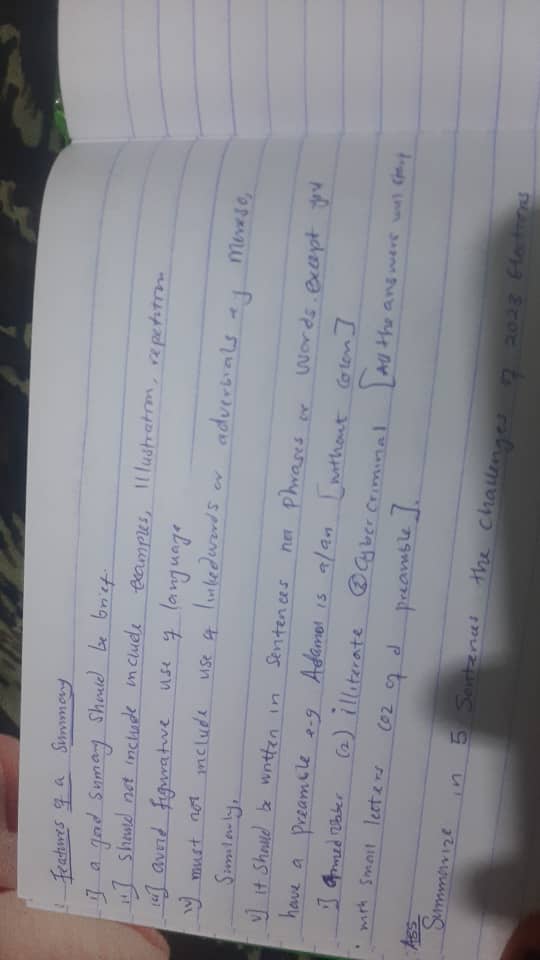 Features of a Summary
i] a good Sumary Should be brief.
ii] Should not include include examples, Illustration, repetition
iii] avoid figurative use of language
iv] must not include use of linkedwords or adverbials eg Moreso,
Similarly,
v] it Should be written in Sentences not Phrases or Words. except you
have a Preamble e-g Adamol is a/an [without Colon]
1] Armed robber (2) illiterate ③ Cyber Criminal [All the answers will start
with small letters coz of d preamble].
Ass
Summarize in 5 Sentences the Challenges of 2023 Elections